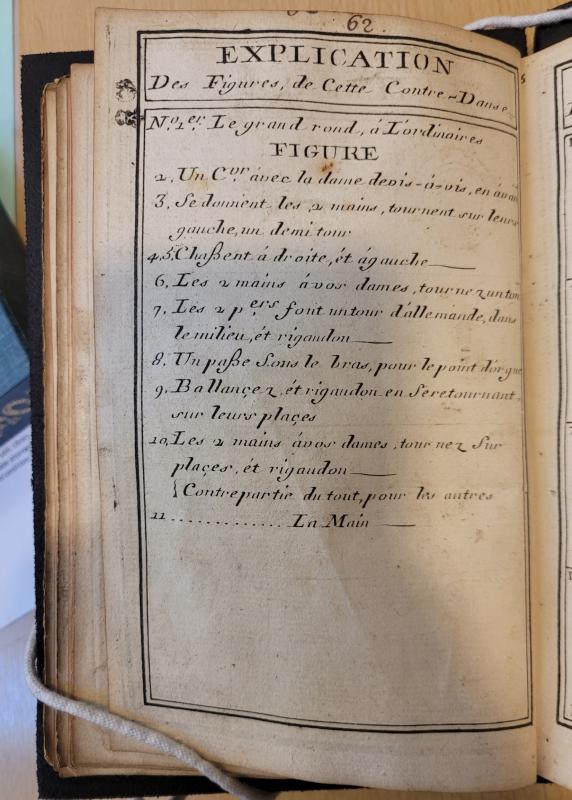 62.
EXPLICATION
Des Figures, de Cette Contre-Danse
N.º 1.er Le grand rond, á L'ordinaires
FIGURE
2, Un C.vor ávec la dame devis-á-vis, en ávant
3, Se donnent les 2 mains, tournent sur leurs
gauche, un demi tour
4,5, Chaßent á droite, ét ágauche
6, Les 2 mains ávos dames, tournez un tour
7, Les 2 p.ers font untour d'allemande, dans
le milieu, ét rigaudon
8, Un paße Sous le bras, pour le point d'orgue
9, Ballançez, ét rigaudon en Seretournant
sur leurs plaçes
10, Les 2 mains ávos dames, tournez Sur
plaçes, ét rigaudon
Contrepartie du tout, pour les autres
11 ............. La Main